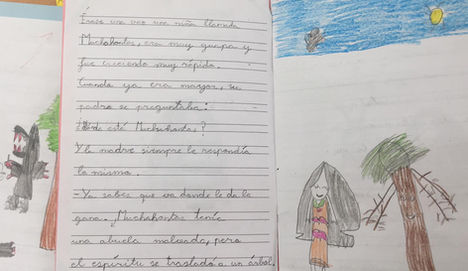 Érase una vez una niña llamada
Muchahontas, era muy guapa y
fue creciendo muy rápido.
Cuando ya era mayor, su
padre se preguntaba:
¿Dónde está Muchahontas?
Y la madre siempre le respondía
lo mismo.
- Ya sabes que va donde le da la
gana. Muchahontas tenía
una abuela malvada, pero
el espíritu se trasladó a un árbol